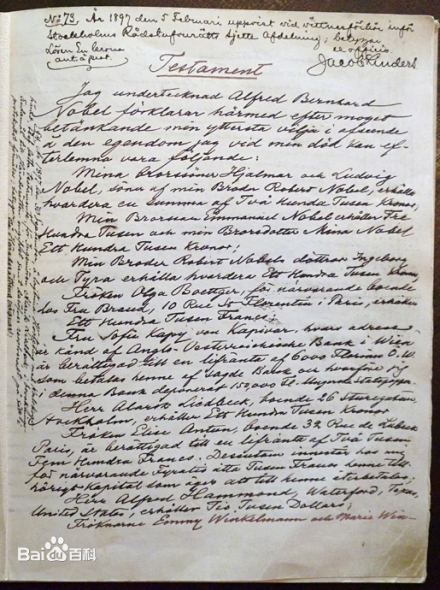 No 73. År 1897 den 5 Februari uppvist vid vittnesförhör inför
Stockholms Rådstufvurätts sjette Afdelning; betygar
ex officio.
Jacob
Testament
Jag undertecknad Alfred Bernhard
Nobel förklarar härmed efter moget
betänkande min yttersta vilja i afseende
å den egendom jag vid min död kan ef-
terlemna vara följande:
Mina Brorsöner Hjalmar och Ludvig
Nobel, söner af min Broder Robert Nobel, erhålla
hvardera en summa af Två Hundra Tusen Kronor;
Min Brorson Emmanuel Nobel erhåller Tre
Hundra Tusen och min Brorsdotter Mina Nobel
Ett Hundra Tusen Kronor;
Min Broder Robert Nobels döttrar Ingeborg
och Tyra erhålla hvardera Ett Hundra Tusen Kronor
Fröken Olga Boettger, för närvarande boende
hos Fru Brand, 10 Rue St Florentin i Paris, erhåller
Ett Hundra Tusen Francs;
Fru Sofie Kapy von Kapivar, hvars adress
är känd af Anglo-Oesterreichische Bank i Wien
är berättigad till en lifränta af 6000 Florins Ö.W.
som betalas henne af sagde Bank och hvarför jag
i denna Bank deponerat 150,000 Fl. i Ungerska Statspapper
Herr Alarik Liedbeck, boende 26 Sturegatan,
Stockholm, erhåller Ett Hundra Tusen Kronor
Fröken Elise Antun, boende 32 Rue de Lubeck
Paris, är berättigad till en lifränta af Två Tusen
Fem Hundra Francs. Dessutom innestår hos mig
för närvarande Fyratio åtta Tusen Francs henne till-
hörigt kapital som äger att till henne återbetalas;
Herr Alfred Hammond, Waterford, Texas,
United States, erhåller Tio Tusen Dollars;
Fröknarne Emmy Winkelmann och Marie Win-
Bai du 百科